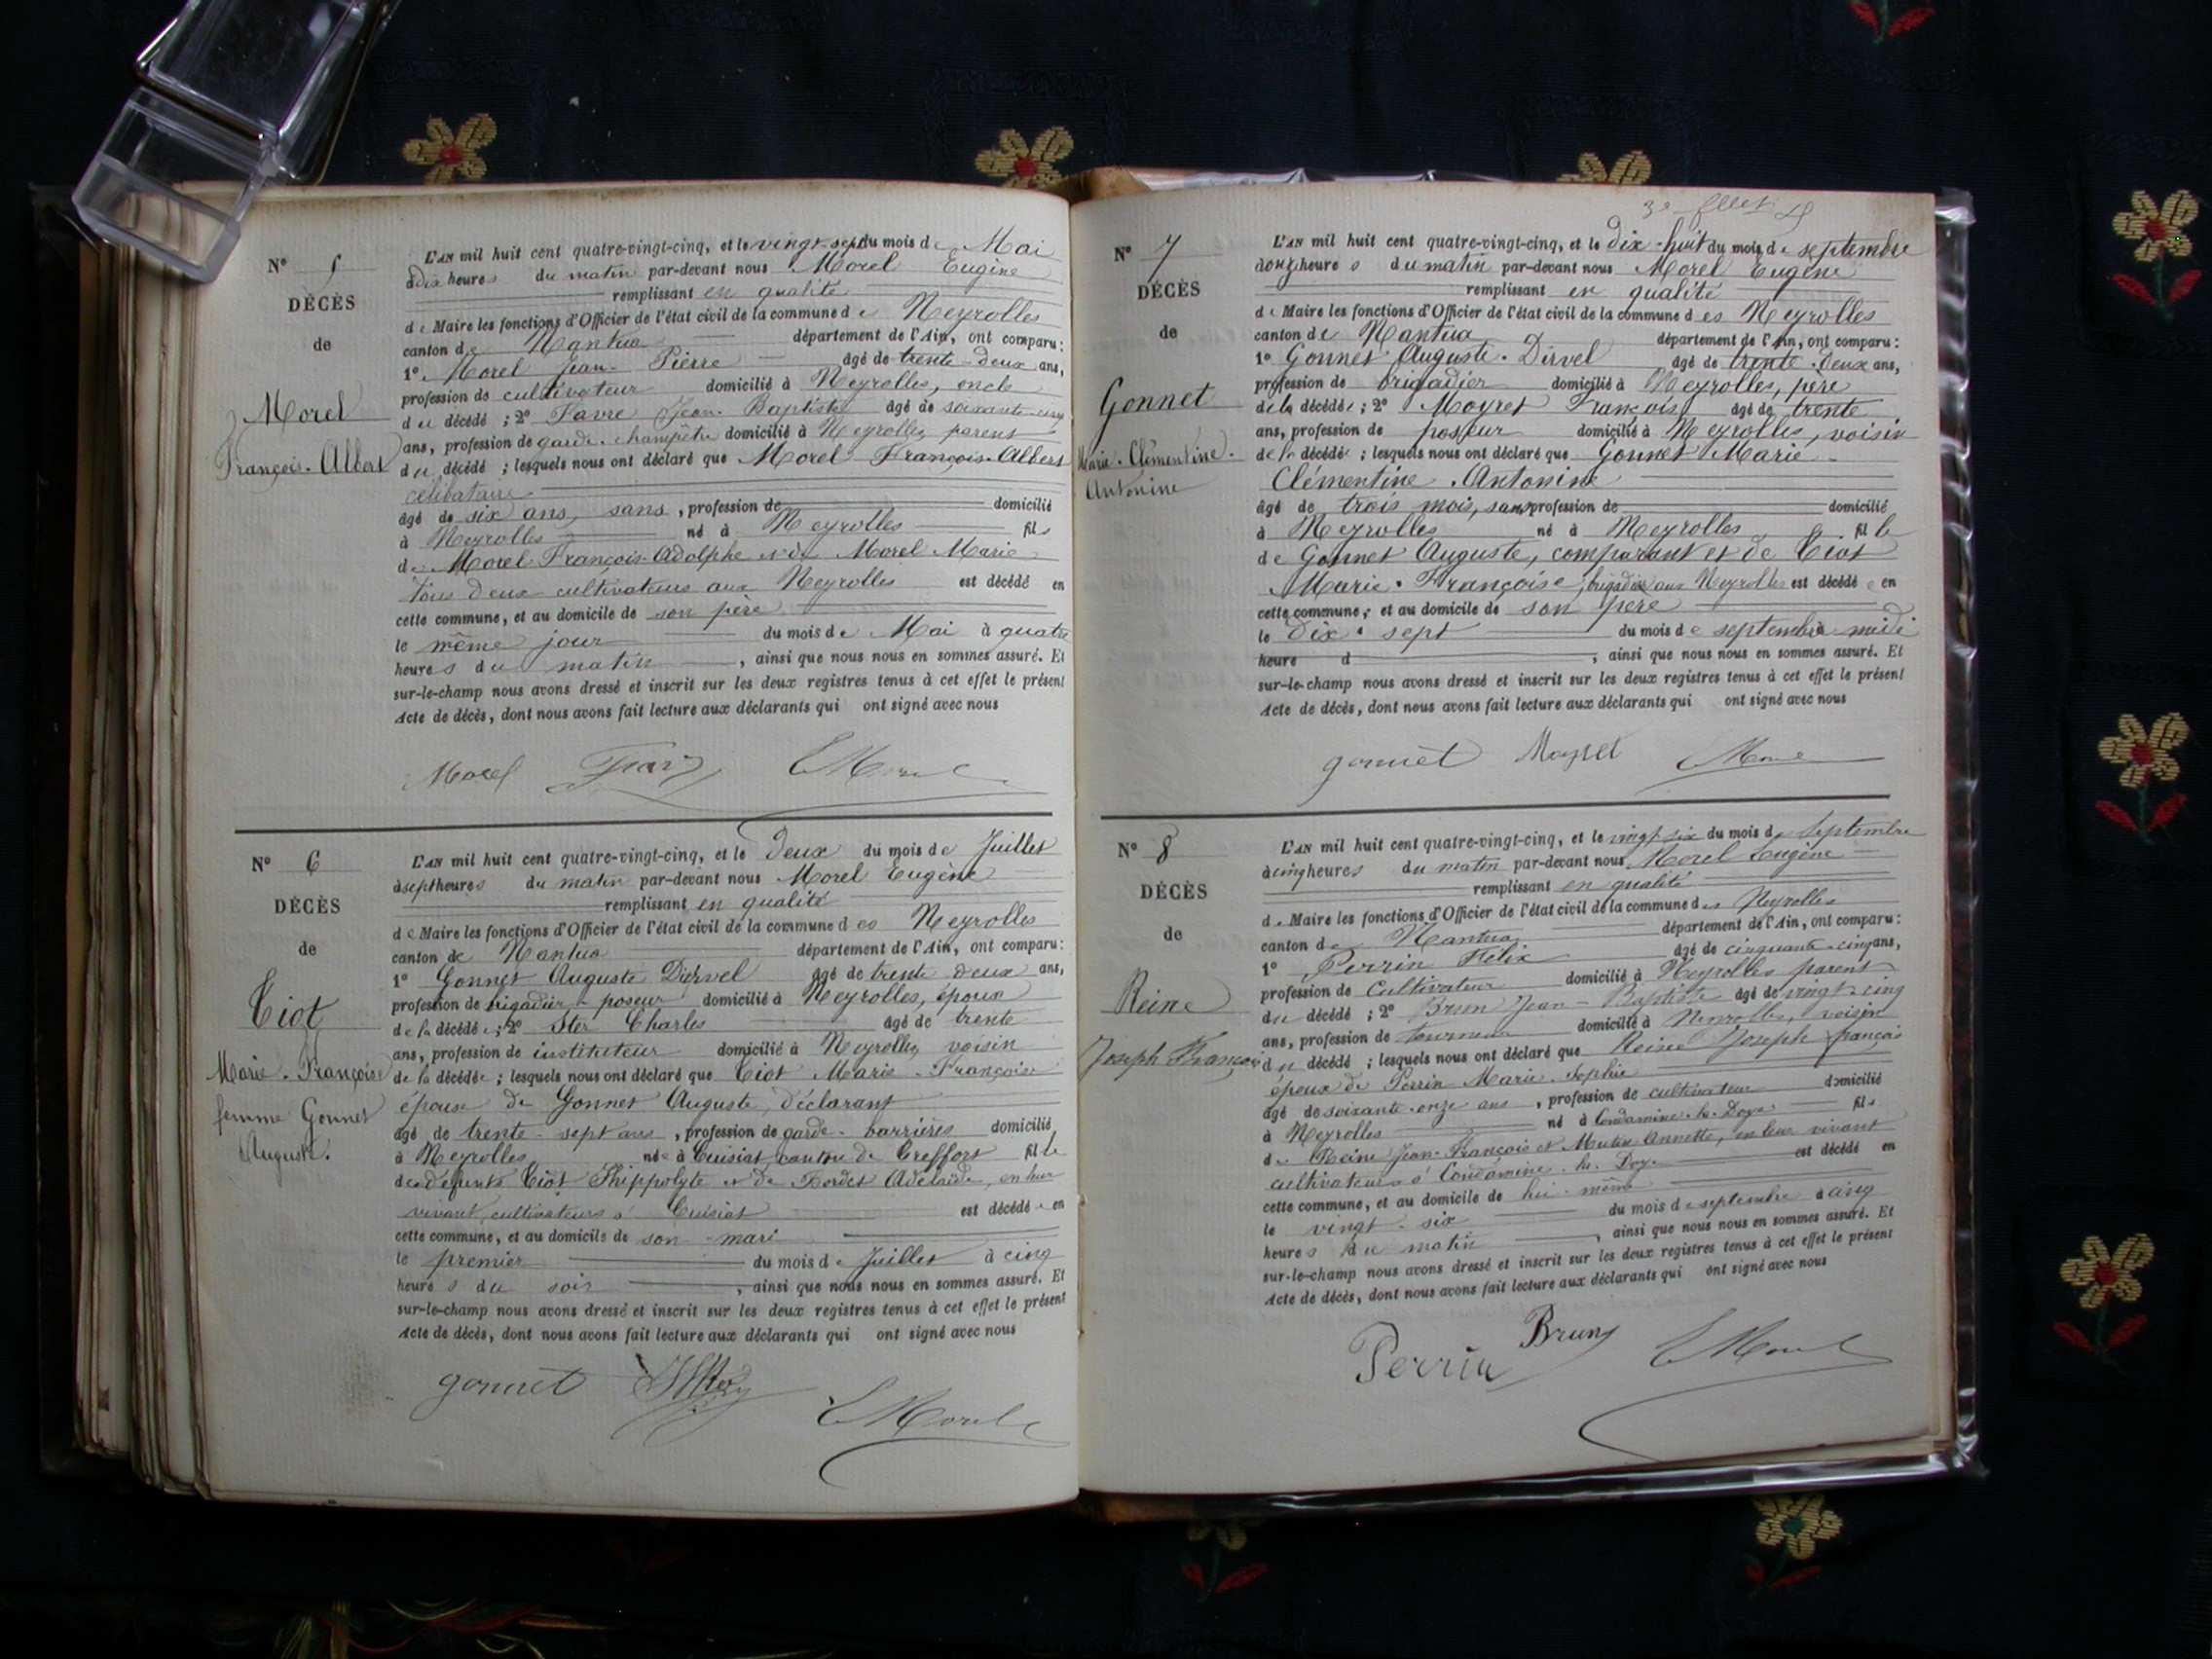 N° 5
DÉCÈS
de
Morel
François-Albert
L'AN mil huit cent quatre-vingt-cinq, et le vingt-sept du mois de Mai
à dix heures du matin par-devant nous Morel Eugène
remplissant en qualité
de Maire les fonctions d'Officier de l'état civil de la commune de Neyrolles
canton de Nantua département de l'Ain, ont comparu:
1° Morel Jean-Pierre âgé de trente-deux ans,
profession de cultivateur domicilié à Neyrolles, oncle
du décédé ; 2° Favre Jean-Baptiste âgé de soixante-cinq
ans, profession de garde-champêtre domicilié à Neyrolles parent
du décédé ; lesquels nous ont déclaré que Morel François-Albert
célibataire
âgé de six ans, sans, profession de domicilié
à Neyrolles né à Neyrolles fils
de Morel François-Adolphe et de Morel Marie
tous deux cultivateurs aux Neyrolles est décédé en
cette commune, et au domicile de son père
le même jour du mois de Mai à quatre
heures du matin, ainsi que nous nous en sommes assuré. Et
sur-le-champ nous avons dressé et inscrit sur les deux registres tenus à cet effet le présent
Acte de décès, dont nous avons fait lecture aux déclarants qui ont signé avec nous
Morel E Morel
N° 6
DÉCÈS
de
Tiot
Marie-Françoise
femme Gonnet
Auguste.
L'AN mil huit cent quatre-vingt-cinq, et le deux du mois de Juillet
à sept heures du matin par-devant nous Morel Eugène
remplissant en qualité
de Maire les fonctions d'Officier de l'état civil de la commune des Neyrolles
canton de Nantua département de l'Ain, ont comparu:
1° Gonnet Auguste Diervel âgé de trente deux ans,
profession de brigadier-poseur domicilié à Neyrolles, époux
de la décédée ; 2° Ster Charles âgé de trente
ans, profession de instituteur domicilié à Neyrolles voisin
de la décédée ; lesquels nous ont déclaré que Tiot Marie-Françoise
épouse de Gonnet Auguste, déclarant
âgé de trente-sept ans, profession de garde-barrières domicilié
à Neyrolles née à Cuisiat canton de Treffort fille
des défunts Tiot Thippolyte et de Bordet Adélaïde, en leur
vivant, cultivateurs à Cuisiat est décédée en
cette commune, et au domicile de son mari
le premier du mois de Juillet à cinq
heures du soir, ainsi que nous nous en sommes assuré. Et
sur-le-champ nous avons dressé et inscrit sur les deux registres tenus à cet effet le présent
Acte de décès, dont nous avons fait lecture aux déclarants qui ont signé avec nous
gonnet E Morel
N° 7
DÉCÈS
de
Gonnet
Marie-Clémentine-
Antonine
L'AN mil huit cent quatre-vingt-cinq, et le dix-huit du mois de septembre
à onze heures du matin par-devant nous Morel Eugène
remplissant en qualité
de Maire les fonctions d'Officier de l'état civil de la commune des Neyrolles
canton de Nantua département de l'Ain, ont comparu:
1° Gonnet Auguste-Dirvel âgé de trente-deux ans,
profession de brigadier domicilié à Neyrolles, père
de la décédée ; 2° Moyret François âgé de trente
ans, profession de poseur domicilié à Neyrolles, voisin
de la décédée ; lesquels nous ont déclaré que Gonnet Marie-
Clémentine-Antonine
âgé de trois mois, sans profession de domicilié
à Neyrolles né à Neyrolles fille
de Gonnet Auguste, comparant et de Tiot
Marie-Françoise, brigadier aux Neyrolles est décédée en
cette commune, et au domicile de son père
le dix-sept du mois de septembre à midi
heure d, ainsi que nous nous en sommes assuré. Et
sur-le-champ nous avons dressé et inscrit sur les deux registres tenus à cet effet le présent
Acte de décès, dont nous avons fait lecture aux déclarants qui ont signé avec nous
gonnet Moyret E Morel
N° 8
DÉCÈS
de
Reine
Joseph François
L'AN mil huit cent quatre-vingt-cinq, et le vingt-six du mois de Septembre
à cinq heures du matin par-devant nous Morel Eugène
remplissant en qualité
de Maire les fonctions d'Officier de l'état civil de la commune des Neyrolles
canton de Nantua département de l'Ain, ont comparu:
1° Perrin Félix âgé de cinquante-cinq ans,
profession de Cultivateur domicilié à Neyrolles parent
du décédé ; 2° Brun Jean-Baptiste âgé de vingt-cinq
ans, profession de tourneur domicilié à Neyrolles, voisin
du décédé ; lesquels nous ont déclaré que Reine Joseph françois
époux de Perrin Marie-Sophie
âgé de soixante-onze ans, profession de cultivateur domicilié
à Neyrolles né à Condamine-la-Doye fils
de Reine Jean-François et Mutin Annette, en leur vivant
cultivateurs à Condamine-la-Doye est décédé en
cette commune, et au domicile de lui-même
le vingt-six du mois de septembre à cinq
heures du matin, ainsi que nous nous en sommes assuré. Et
sur-le-champ nous avons dressé et inscrit sur les deux registres tenus à cet effet le présent
Acte de décès, dont nous avons fait lecture aux déclarants qui ont signé avec nous
Perrin Brun E Morel